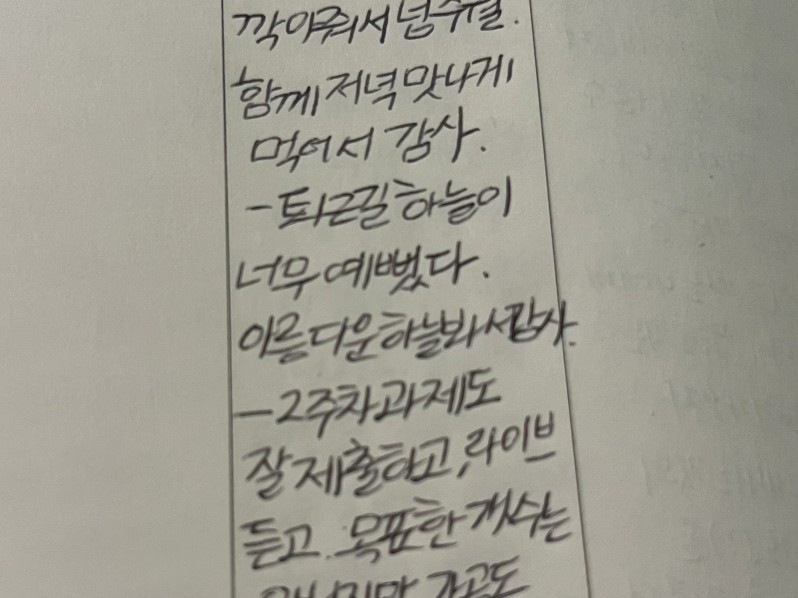 깍아줘서 넘 수월.
함께 저녁 맛나게
먹어서 감사.
- 퇴근길 하늘이
너무 예뻤다.
아름다운 하늘봐서 감사.
- 2주차 과제도
잘 제출하고, 라이브
듣고. 목표한 갯수는